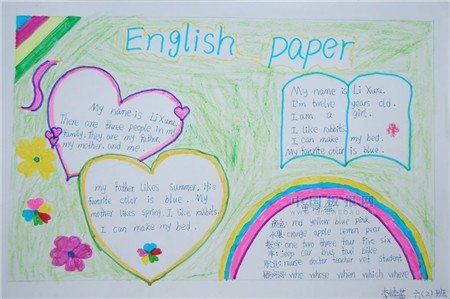 English paper
My name is Li Xuru.
There are three people in my
family. They are my father,
my mother, and me.
my father likes summer. His
favorite color is blue. My
mother likes spring. I like rabbits.
I can make my bed.
My name is Li Xuru.
I'm twelve years old.
I am a girl.
I like rabbits.
I can make my bed.
My favorite color is blue.
中国画报网
red yellow blue pink
水果: orange apple lemon pear
数字: one two three four five six
车: jeep car bus taxi bike
nurse doctor teacher vet student
疑问词: who whose when which where
六(2)班